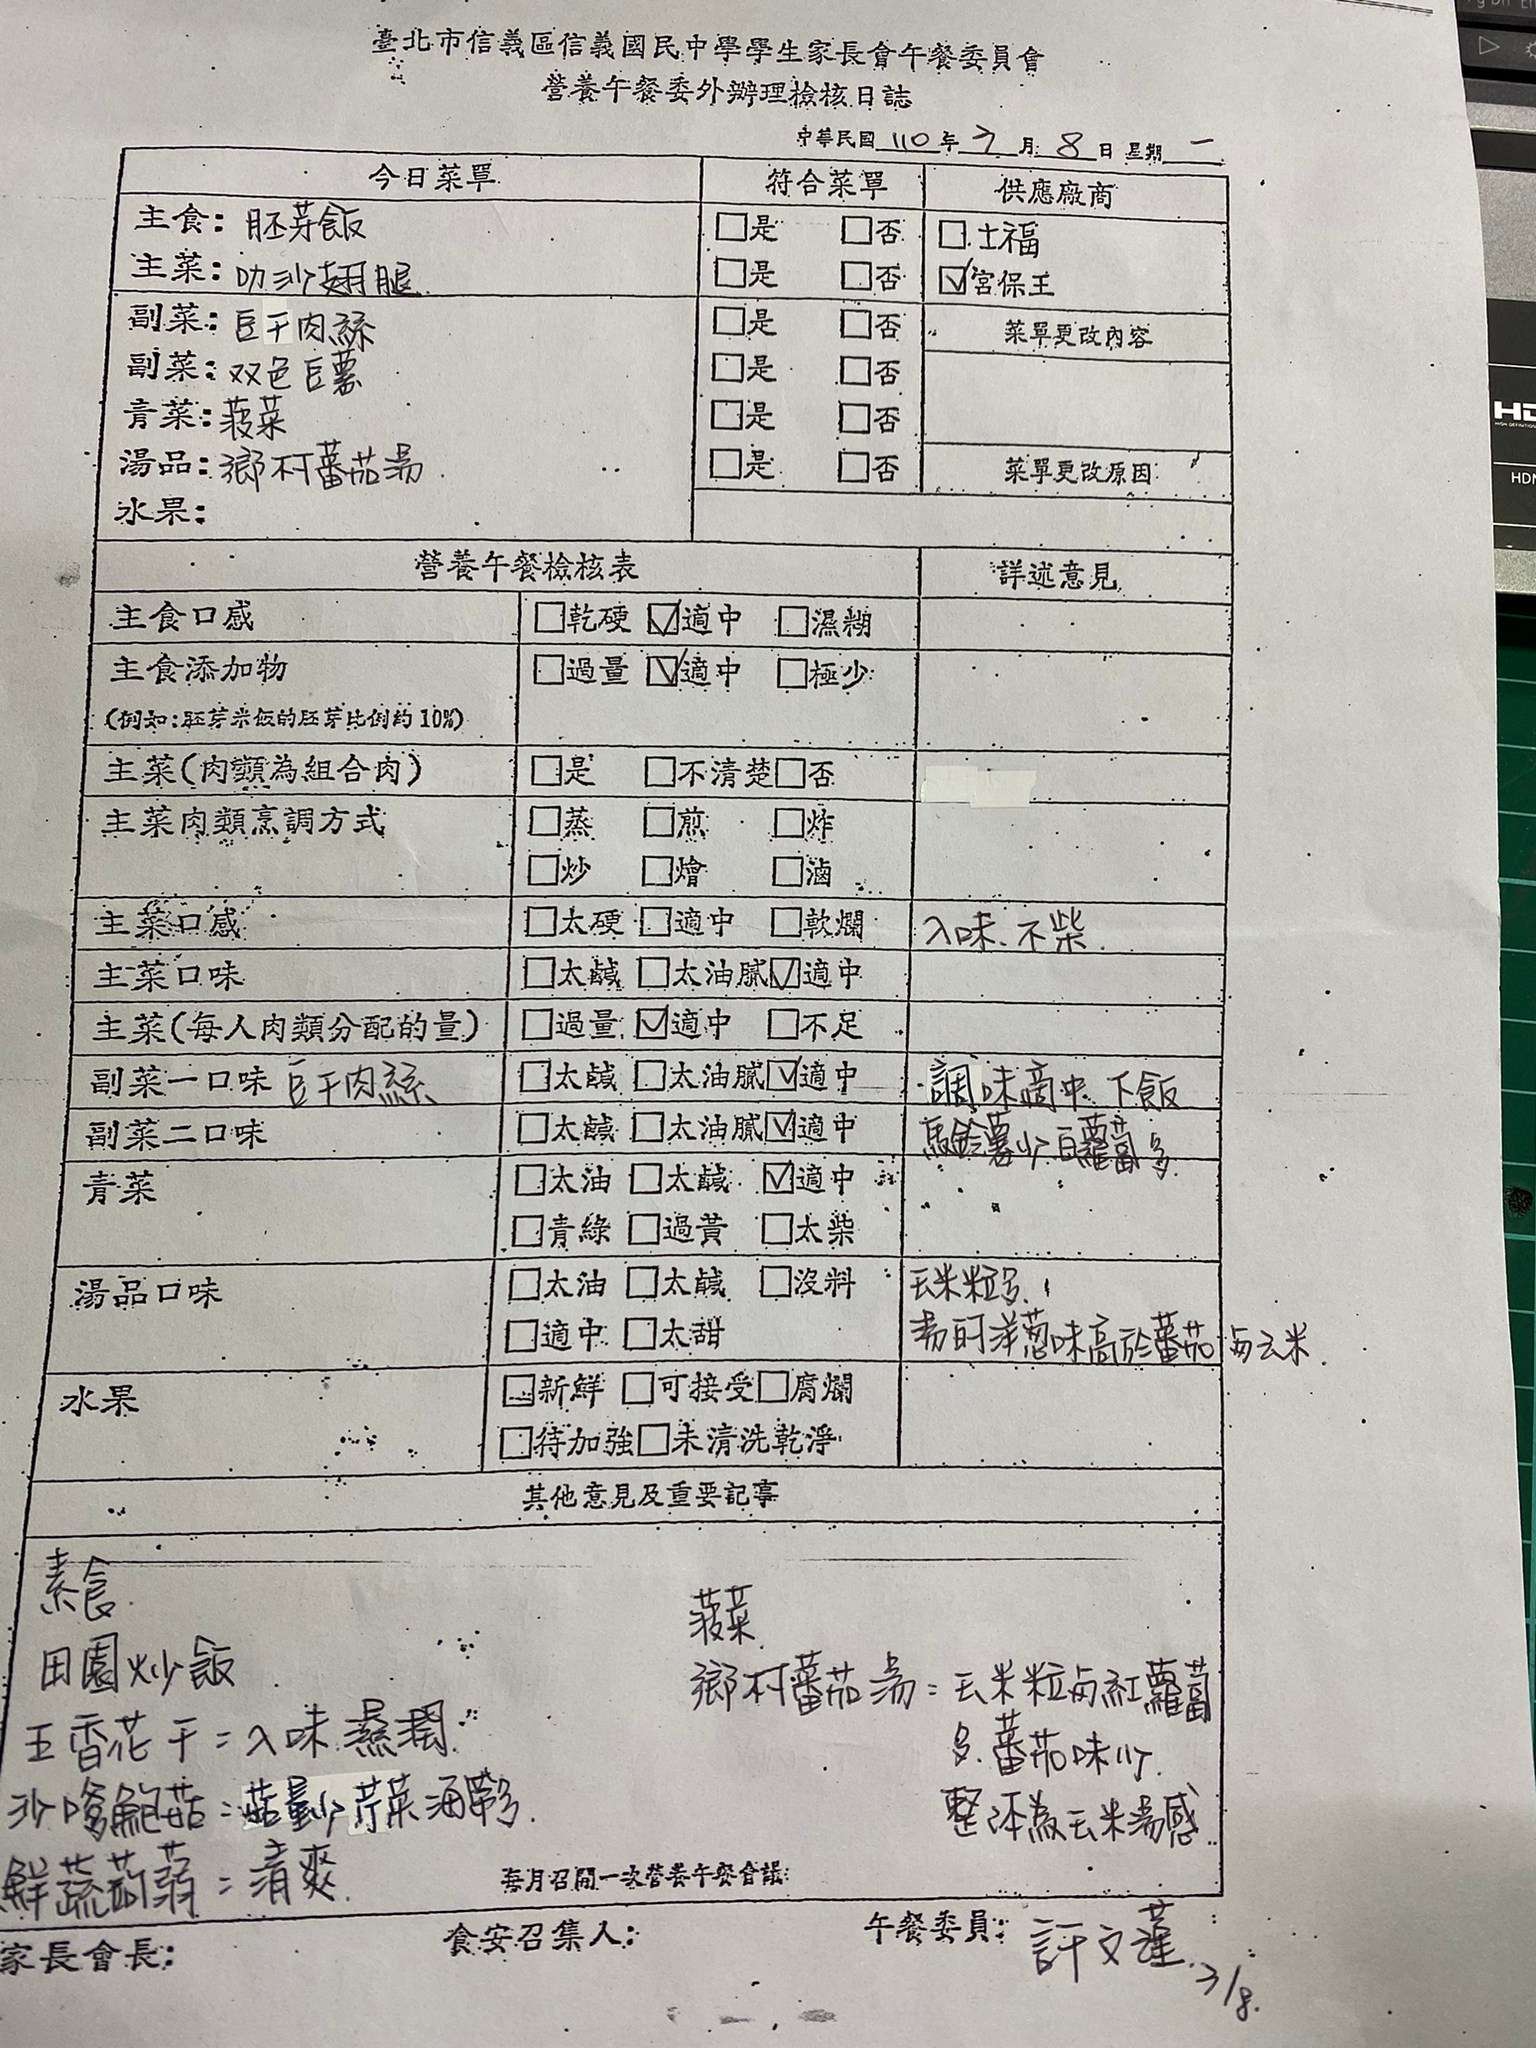 臺北市信義區信義國民中學學生家長會午餐委員會
營養午餐委外辦理檢核日誌
中華民國 110 年 3 月 8 日 星期 一
今日菜單 符合菜單 供應廠商
主食: 胚芽飯 □是 □否 □士福
主菜: 叻沙翅腿 □是 □否 ☑宮保王
副菜: 豆干肉絲 □是 □否 菜單更改內容
副菜: 双色豆薯 □是 □否
青菜: 菠菜 □是 □否
湯品: 鄉村蕃茄湯 □是 □否 菜單更改原因
水果:
營養午餐檢核表 詳述意見
主食口感 □乾硬 ☑適中 □濕糊
主食添加物 □過量 ☑適中 □極少
(例如:胚芽米飯的胚芽比例約10%)
主菜(肉類為組合肉) □是 □不清楚 □否
主菜肉類烹調方式 □蒸 □煎 □炸
□炒 □燴 □滷
主菜口感 □太硬 □適中 □軟爛 入味、不柴
主菜口味 □太鹹 □太油膩 ☑適中
主菜(每人肉類分配的量) □過量 ☑適中 □不足
副菜一口味 豆干肉絲 □太鹹 □太油膩 ☑適中 調味適中 下飯
副菜二口味 □太鹹 □太油膩 ☑適中 馬鈴薯少 白蘿蔔多
青菜 □太油 □太鹹 ☑適中
□青綠 □過黃 □太柴
湯品口味 □太油 □太鹹 □沒料 玉米粒多
□適中 □太甜 湯的洋蔥味高於蕃茄与玉米
水果 □新鮮 □可接受 □腐爛
□待加強 □未清洗乾淨
其他意見及重要記事
素食
田園炒飯
五香花干=入味 濕潤
沙嗲鮑菇=菇量少 芹菜海帶多
鮮蔬蒟蒻=清爽
菠菜
鄉村蕃茄湯=玉米粒与紅蘿蔔
多.蕃茄味少
整体為玉米湯感
每月召開一次營養午餐會議
家長會長: 食安召集人: 午餐委員: 許文蓮 3/8.
HDM
HIGH DEFINITION